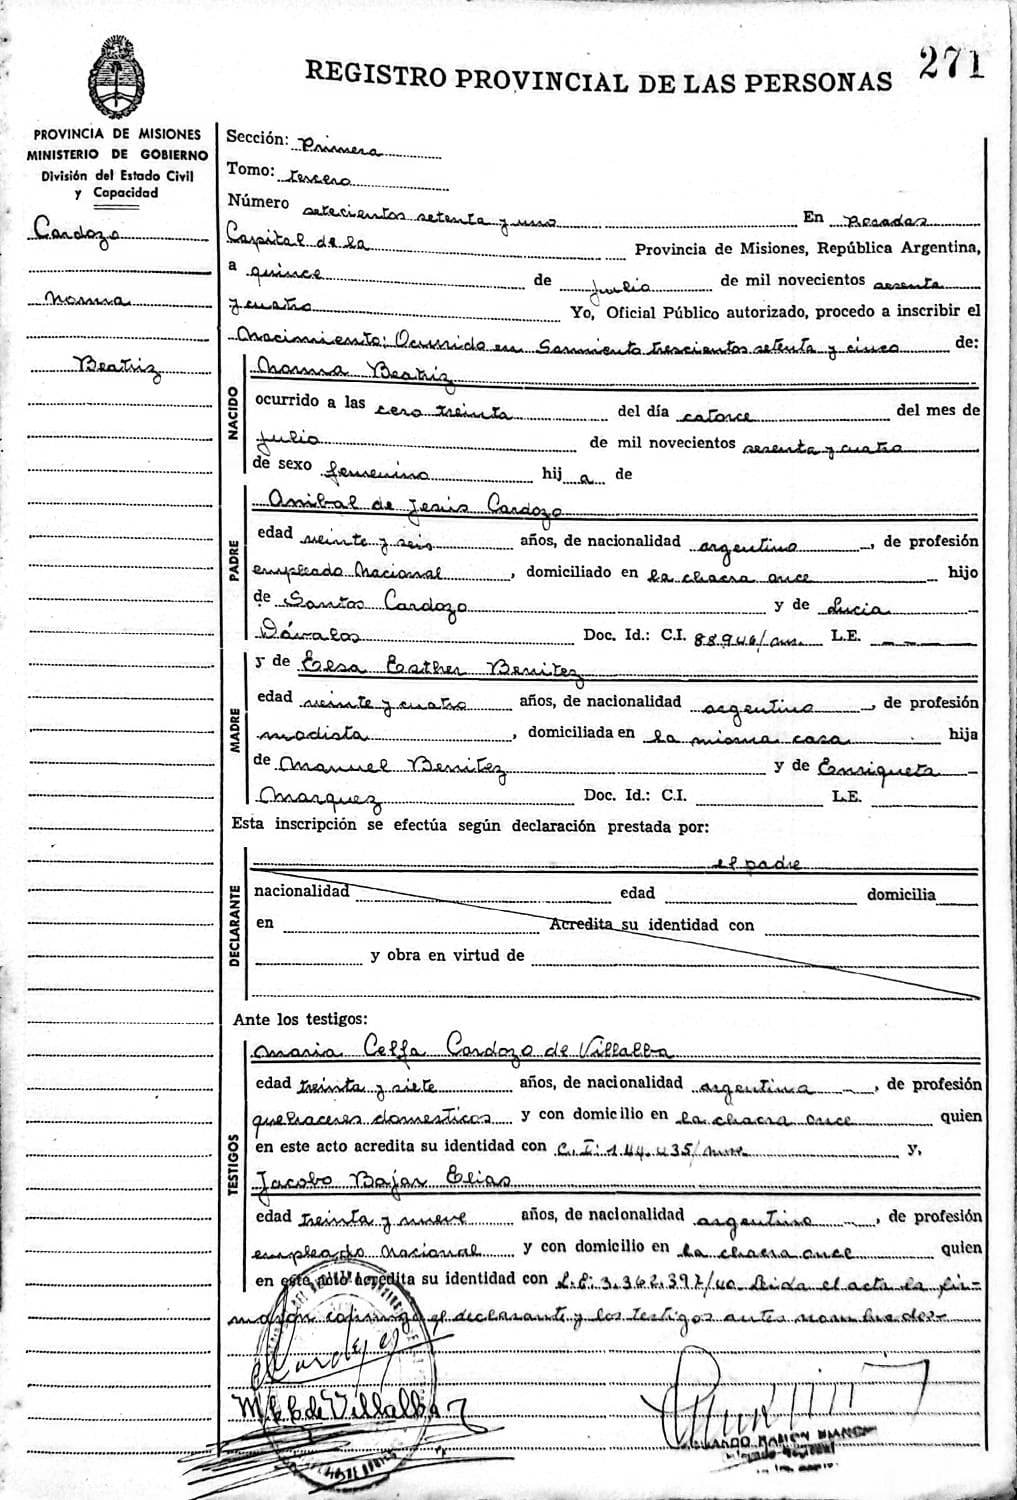 271
REGISTRO PROVINCIAL DE LAS PERSONAS
PROVINCIA DE MISIONES
MINISTERIO DE GOBIERNO
División del Estado Civil
y Capacidad
Cardozo
Norma
Beatriz
Sección: Primera
Tomo: tercero
Número setecientos setenta y uno En Posadas
Capital de la Provincia de Misiones, República Argentina,
a quince de julio de mil novecientos sesenta
y cuatro Yo, Oficial Público autorizado, procedo a inscribir el
Nacimiento: Ocurrido en Sarmiento trescientos setenta y cinco de:
NACIDO
Norma Beatriz
ocurrido a las cero treinta del día catorce del mes de
julio de mil novecientos sesenta y cuatro
de sexo femenino hij a de
PADRE
Anibal de Jesús Cardozo
edad veinte y seis años, de nacionalidad argentino, de profesión
empleado Nacional, domiciliado en la chacra once hijo
de Santos Cardozo y de Lucia
Dávalos Doc. Id.: C.I. 88.946/ L.E.
MADRE
y de Elsa Esther Benitez
edad veinte y cuatro años, de nacionalidad argentina, de profesión
modista, domiciliada en la misma casa hija
de Manuel Benitez y de Enriqueta
Marquez Doc. Id.: C.I. L.E.
Esta inscripción se efectúa según declaración prestada por:
DECLARANTE
el padre
nacionalidad edad domicilia
en Acredita su identidad con
y obra en virtud de
Ante los testigos:
TESTIGOS
Maria Celfa Cardozo de Villalba
edad treinta y siete años, de nacionalidad argentina, de profesión
quehaceres domesticos y con domicilio en la chacra once quien
en este acto acredita su identidad con C.I: 144.435/ y,
Jacobo Bajar Elias
edad treinta y nueve años, de nacionalidad argentino, de profesión
empleado Nacional y con domicilio en la chacra once quien
en este acto acredita su identidad con L.E: 3.362.397/ Leida el acta la fir-
man conmigo el declarante y los testigos antes nombrados-
Cardozo
M.C.C. de Villalba